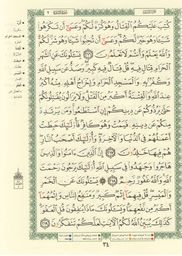 كُتِبَ عَلَيْكُمُ ٱلْقِتَالُ وَهُوَ كُرْهٌ لَّكُمْ وَعَسَىٰٓ أَن تَكْرَهُوا۟
شَيْـًٔا وَهُوَ خَيْرٌ لَّكُمْ وَعَسَىٰٓ أَن تُحِبُّوا۟ شَيْـًٔا وَهُوَ شَرٌّ لَّكُمْ
وَٱللَّهُ يَعْلَمُ وَأَنتُمْ لَا تَعْلَمُونَ ٢١٦ يَسْـَٔلُونَكَ عَنِ ٱلشَّهْرِ
ٱلْحَرَامِ قِتَالٍ فِيهِ قُلْ قِتَالٌ فِيهِ كَبِيرٌ وَصَدٌّ عَن سَبِيلِ ٱللَّهِ
وَكُفْرٌۢ بِهِۦ وَٱلْمَسْجِدِ ٱلْحَرَامِ وَإِخْرَاجُ أَهْلِهِۦ مِنْهُ أَكْبَرُ
عِندَ ٱللَّهِ وَٱلْفِتْنَةُ أَكْبَرُ مِنَ ٱلْقَتْلِ وَلَا يَزَالُونَ يُقَٰتِلُونَكُمْ
حَتَّىٰ يَرُدُّوكُمْ عَن دِينِكُمْ إِنِ ٱسْتَطَٰعُوا۟ وَمَن يَرْتَدِدْ
مِنكُمْ عَن دِينِهِۦ فَيَمُتْ وَهُوَ كَافِرٌ فَأُو۟لَٰٓئِكَ حَبِطَتْ
أَعْمَٰلُهُمْ فِى ٱلدُّنْيَا وَٱلْءَاخِرَةِ وَأُو۟لَٰٓئِكَ أَصْحَٰبُ ٱلنَّارِ
هُمْ فِيهَا خَٰلِدُونَ ٢١٧ إِنَّ ٱلَّذِينَ ءَامَنُوا۟ وَٱلَّذِينَ
هَاجَرُوا۟ وَجَٰهَدُوا۟ فِى سَبِيلِ ٱللَّهِ أُو۟لَٰٓئِكَ يَرْجُونَ رَحْمَتَ ٱللَّهِ
وَٱللَّهُ غَفُورٌ رَّحِيمٌ ٢١٨ يَسْـَٔلُونَكَ عَنِ ٱلْخَمْرِ
وَٱلْمَيْسِرِ قُلْ فِيهِمَآ إِثْمٌ كَبِيرٌ وَمَنَٰفِعُ لِلنَّاسِ وَإِثْمُهُمَآ
أَكْبَرُ مِن نَّفْعِهِمَا وَيَسْـَٔلُونَكَ مَاذَا يُنفِقُونَ قُلِ ٱلْعَفْوَ
كَذَٰلِكَ يُبَيِّنُ ٱللَّهُ لَكُمُ ٱلْءَايَٰتِ لَعَلَّكُمْ تَتَفَكَّرُونَ ٢١٩
٣٤